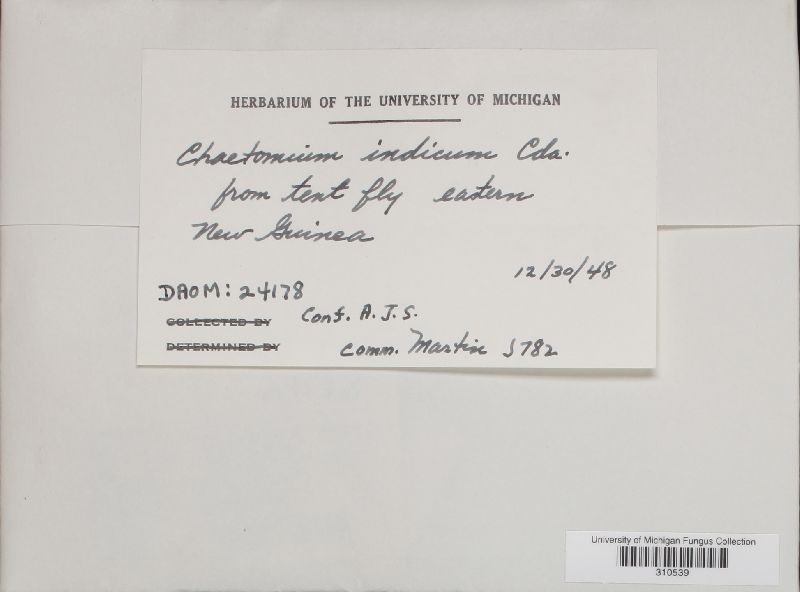 HERBARIUM OF THE UNIVERSITY OF MICHIGAN
Chaetomium indicum Cda.
from tent fly eastern
New Guinea
12/30/48
DAOM: 24178
COLLECTED BY Conf. A.J.S.
DETERMINED BY Comm. Martin S782
University of Michigan Fungus Collection
310539